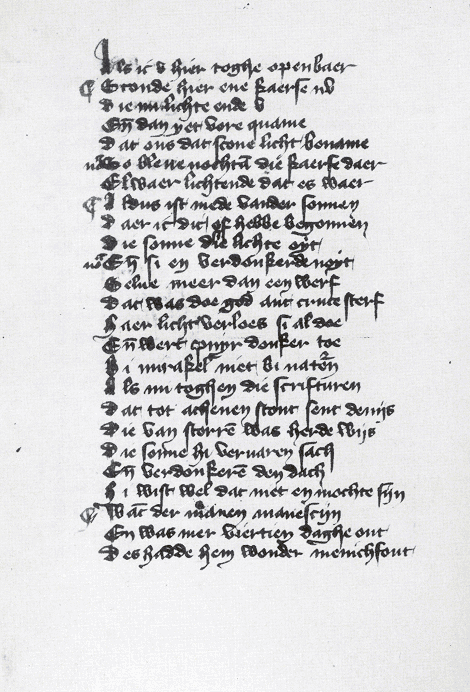 Als ic v hier toghe openbaer
Stonde hier ene kaerse nv
Die mi lichte ende v
Eñ dan yet vore quame
Dat ons dat scone licht boname
So bleue nochtā die kaerse daer
Elwaer lichtende dat es waer
Aldus ist mede vander sonnen
Daer ic dit of hebbe begonnen
Die sonne die lichte eyt
Eñ si en verdonkerde noyt
Selue meer dan een werf
Dat was doe god ant cruce sterf
Haer licht verloes si al doe
Eñ wert donker toe
Bi mirakel niet bi natōn
Als nu toghen die scrifturen
Dat tot athenen stont sent denijs
Die van sterrē was herde wijs
Die sonne hi vervaren sach
Eñ verdonkerē den dach
Hi wist wel dat niet en mochte sijn
Wāt der manen maneschijn
En was mer viertien daghe out
Des hadde hem wonder menichfout